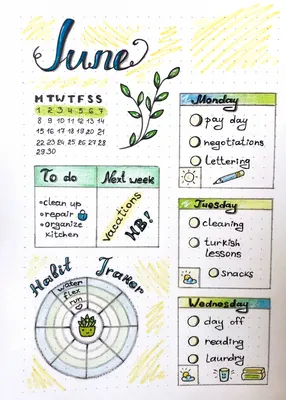 June
M T W T F S S
1 2 3 4 5 6 7
8 9 10 11 12 13 14
15 16 17 18 19 20 21
22 23 24 25 26 27 28
29 30
To do
• clean up
• repair
• organize
kitchen
Next week
vacations
NB!
Habit Traker
water
flex
run
Monday
pay day
negotiations
lettering
Tuesday
cleaning
turkish
lessons
snacks
Wednesday
day off
reading
laundry